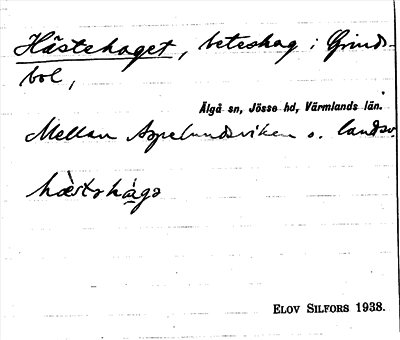 Hästehaget, beteshag i Grinds-
bol,
Älgå sn, Jösse hd, Värmlands län.
Mellan Aspelundsviken o. landsv.
hæ̀stəhágə
ELOV SILFORS 1938.